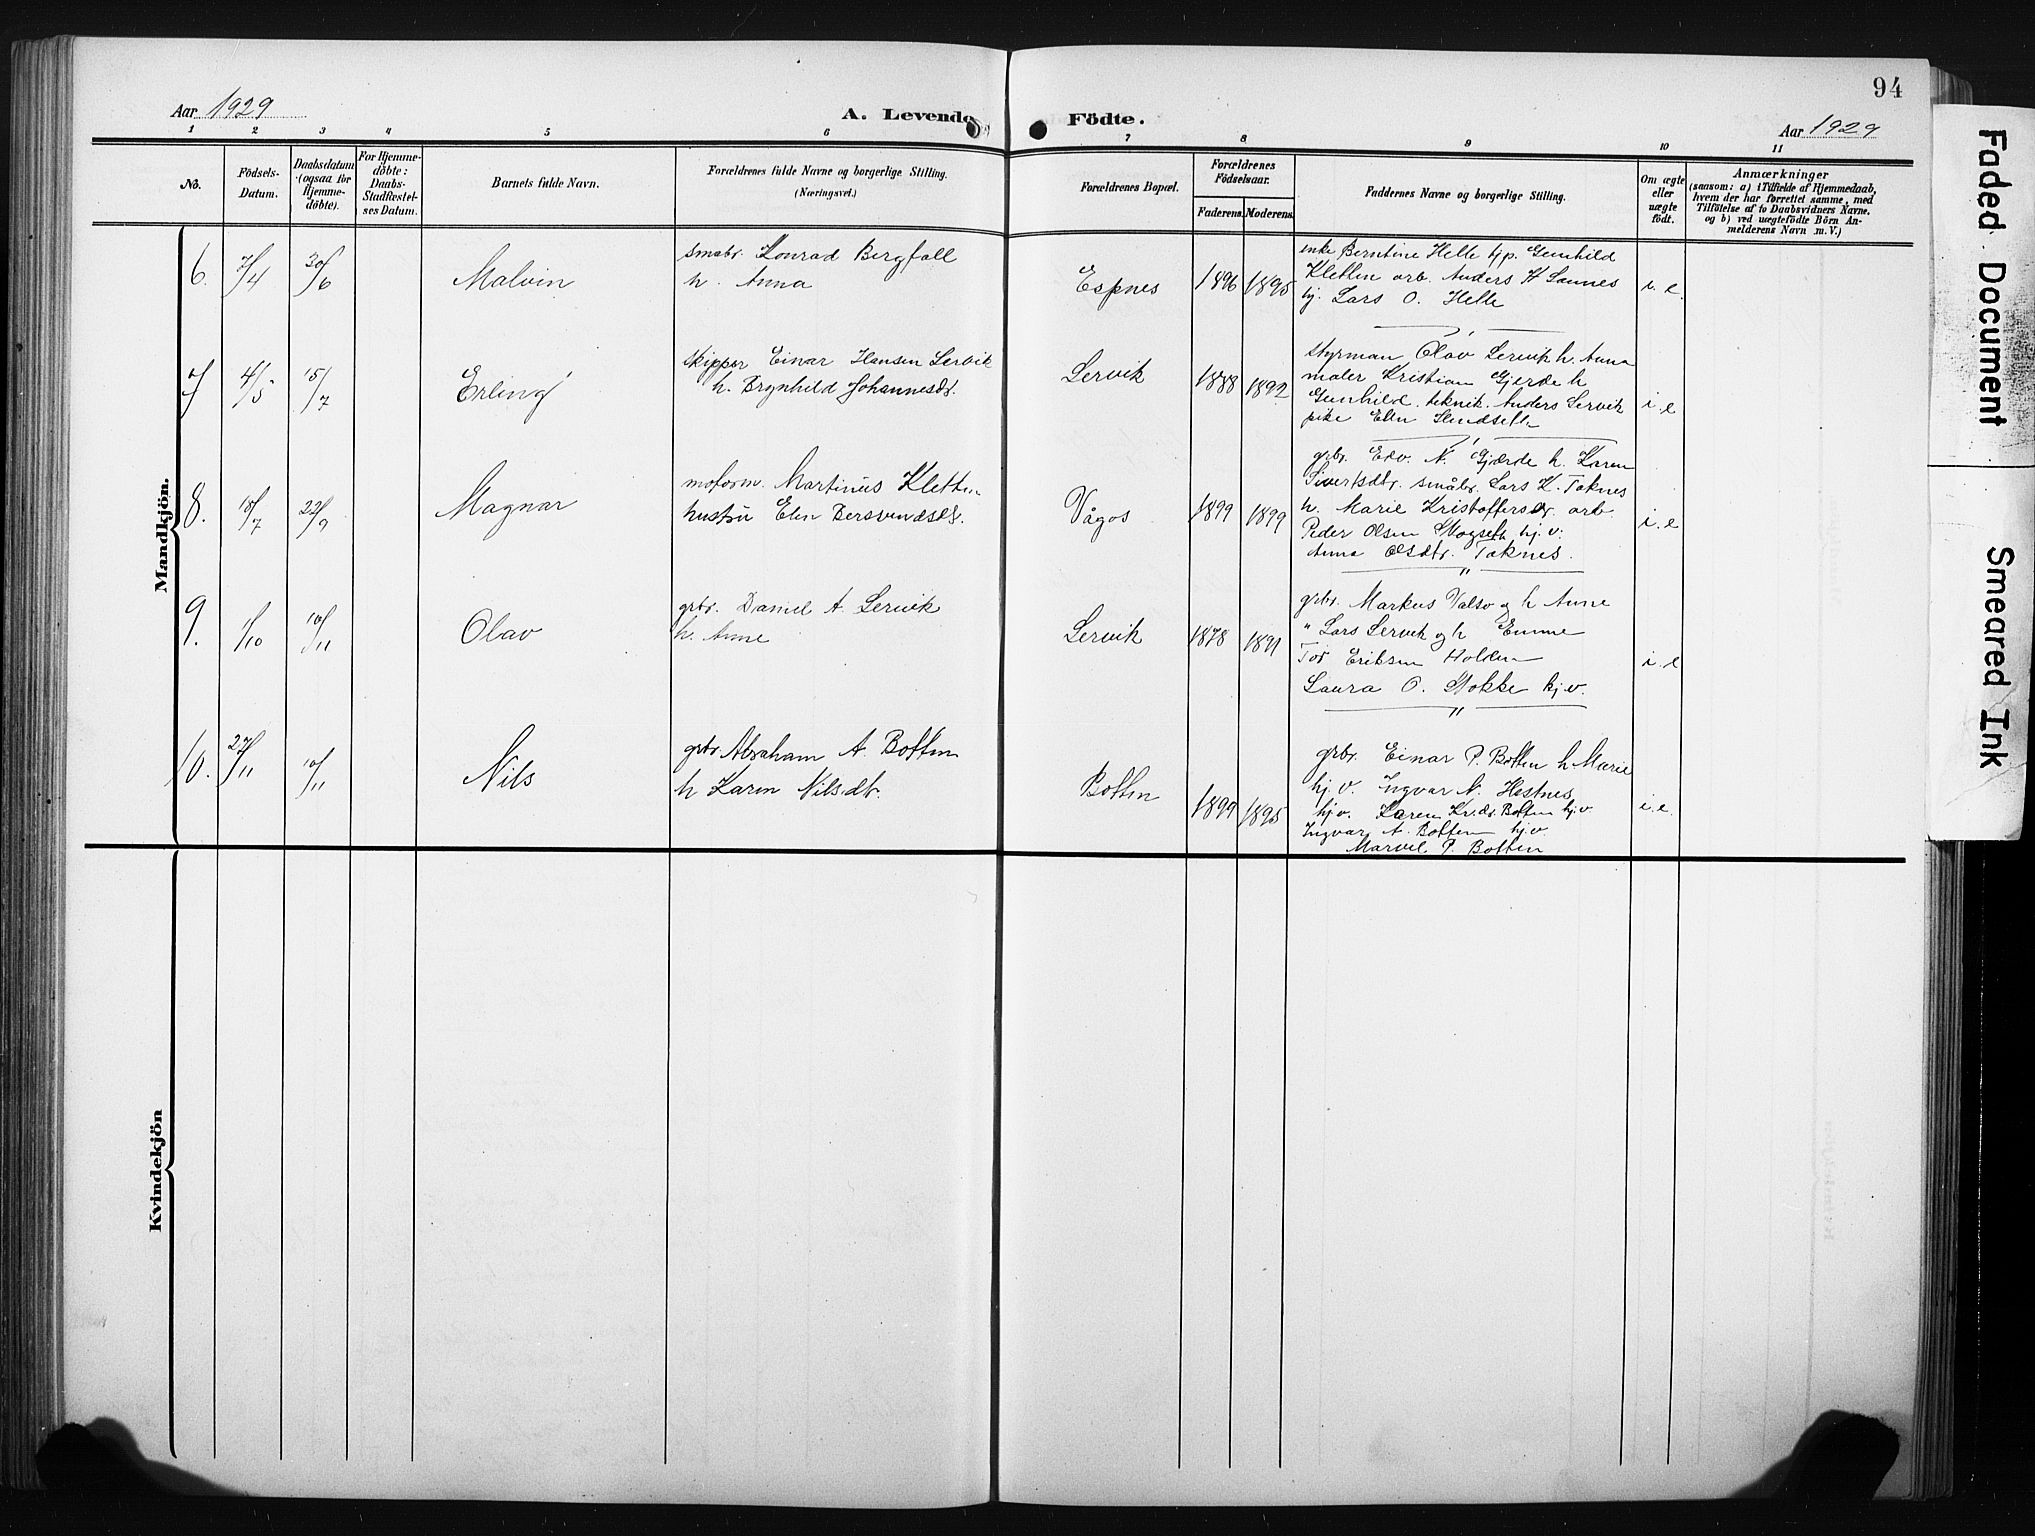 94
Aar 1929
A. Levende Födte.
Aar 1929
1 2 3 4 5 6 7 8 9 10 11
No.
Födsels-
Datum.
Daabsdatum
(ogsaa for
Hjemme-
döbte).
For Hjemme-
döbte:
Daabs-
Stadfæstel-
ses Datum.
Barnets fulde Navn.
Forældrenes fulde Navne og borgerlige Stilling.
(Næringsvei.)
Forældrenes Bopæl.
Forældrenes
Födselsaar.
Faderens. Moderens.
Faddernes Navne og borgerlige Stilling.
Om ægte
eller
uægte
födt.
Anmærkninger
(saasom: a) i Tilfælde af Hjemmedaab,
hvem der har forrettet samme, med
Tilföielse af to Daabsvidners Navne.
og b) ved uægtefödte Börn An-
melderens Navn m. V.)
Mandkjön.
6. 7/4 30/6 Malvin
småbr. Konrad Bergfall
h. Anna
Espnes 1896 1895
enke Berntine Helle hjp. Gunhild
Kletten arb. Anders H Sannes
hj. Lars O. Helle
i. e.
7 4/5 15/7 Erling
skipper Einar Hansen Lervik
h. Brynhild Johannesdr.
Lervik 1888 1892
styrman Olav Lervik h. Anna
maler Kristian Gjerde h
Gunhild. teknik. Anders Lervik
pike Elen
i. e
8. 18/7 22/9 Magnar
motorm. Martinus Kletten
hustru Elen Bersvendsdr.
Vågos 1899 1899
grbr. Edv. N. Gjærde h. Karen
Sivertsdtr. småbr. Lars K. Taknes
h. Marie Kristoffersdr. arb.
Peder Olsen Skogseth hj. v.
Anna Olsdtr. Taknes.
i. e
9. 1/10 10/11 Olav
grbr. Daniel A. Lervik
h. Anne
Lervik 1878 1891
grbr. Markus Valsö og h Anne
" Lars Lervik og h Emme
Tor Eriksen Holden
Laura O. Stokke hj. v.
i. e
10. 27/11 10/11 Nils
grbr Abraham A. Botten
h Karen Nilsdtr.
Botten 1899 1895
grbr. Einar P. Botten h. Marie
hj. v. Ingvar N. Hestnes
hj. v. Karen Kr.dr. Botten hj. v.
Ingvar A. Botten hj. v.
Marvel P. Botten
i. e.
Kvindekjön
Faded Document
Smeared Ink